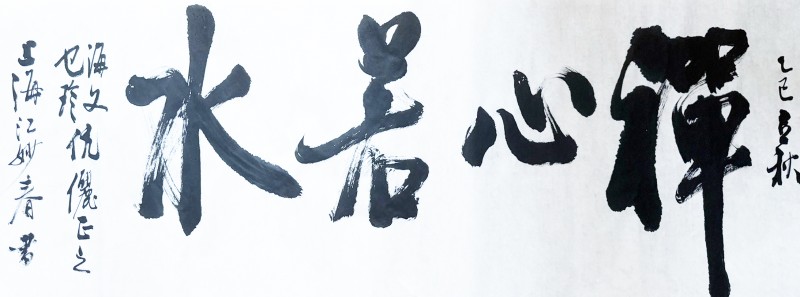 乙巳立秋
禅心若水
海文
也玲伉儷正之
上海江妙春書